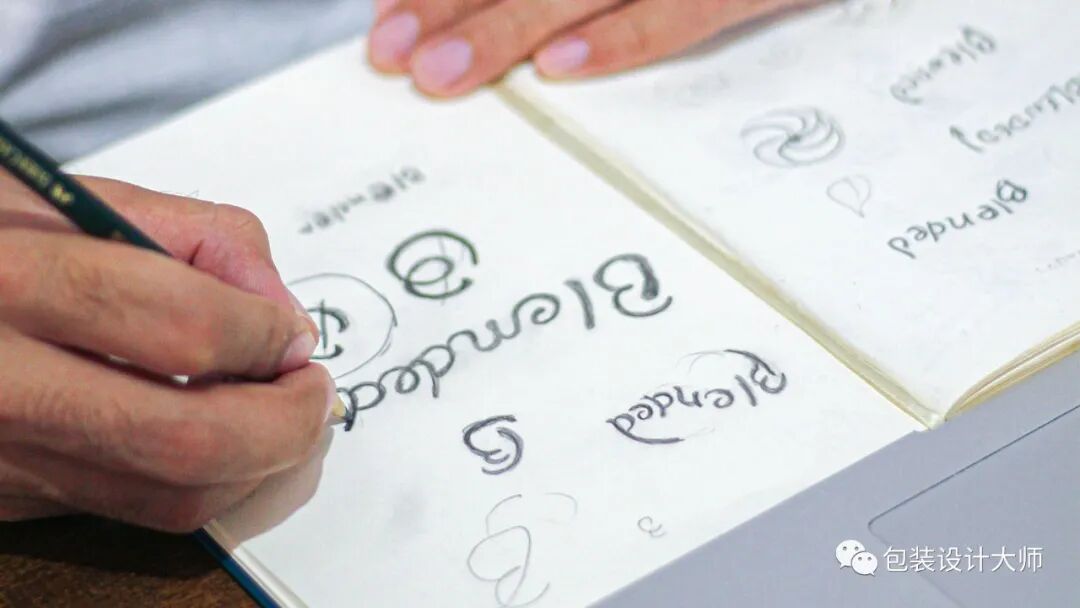 Blended
B
Blended
B
B
Blended
Blended
包装设计大师